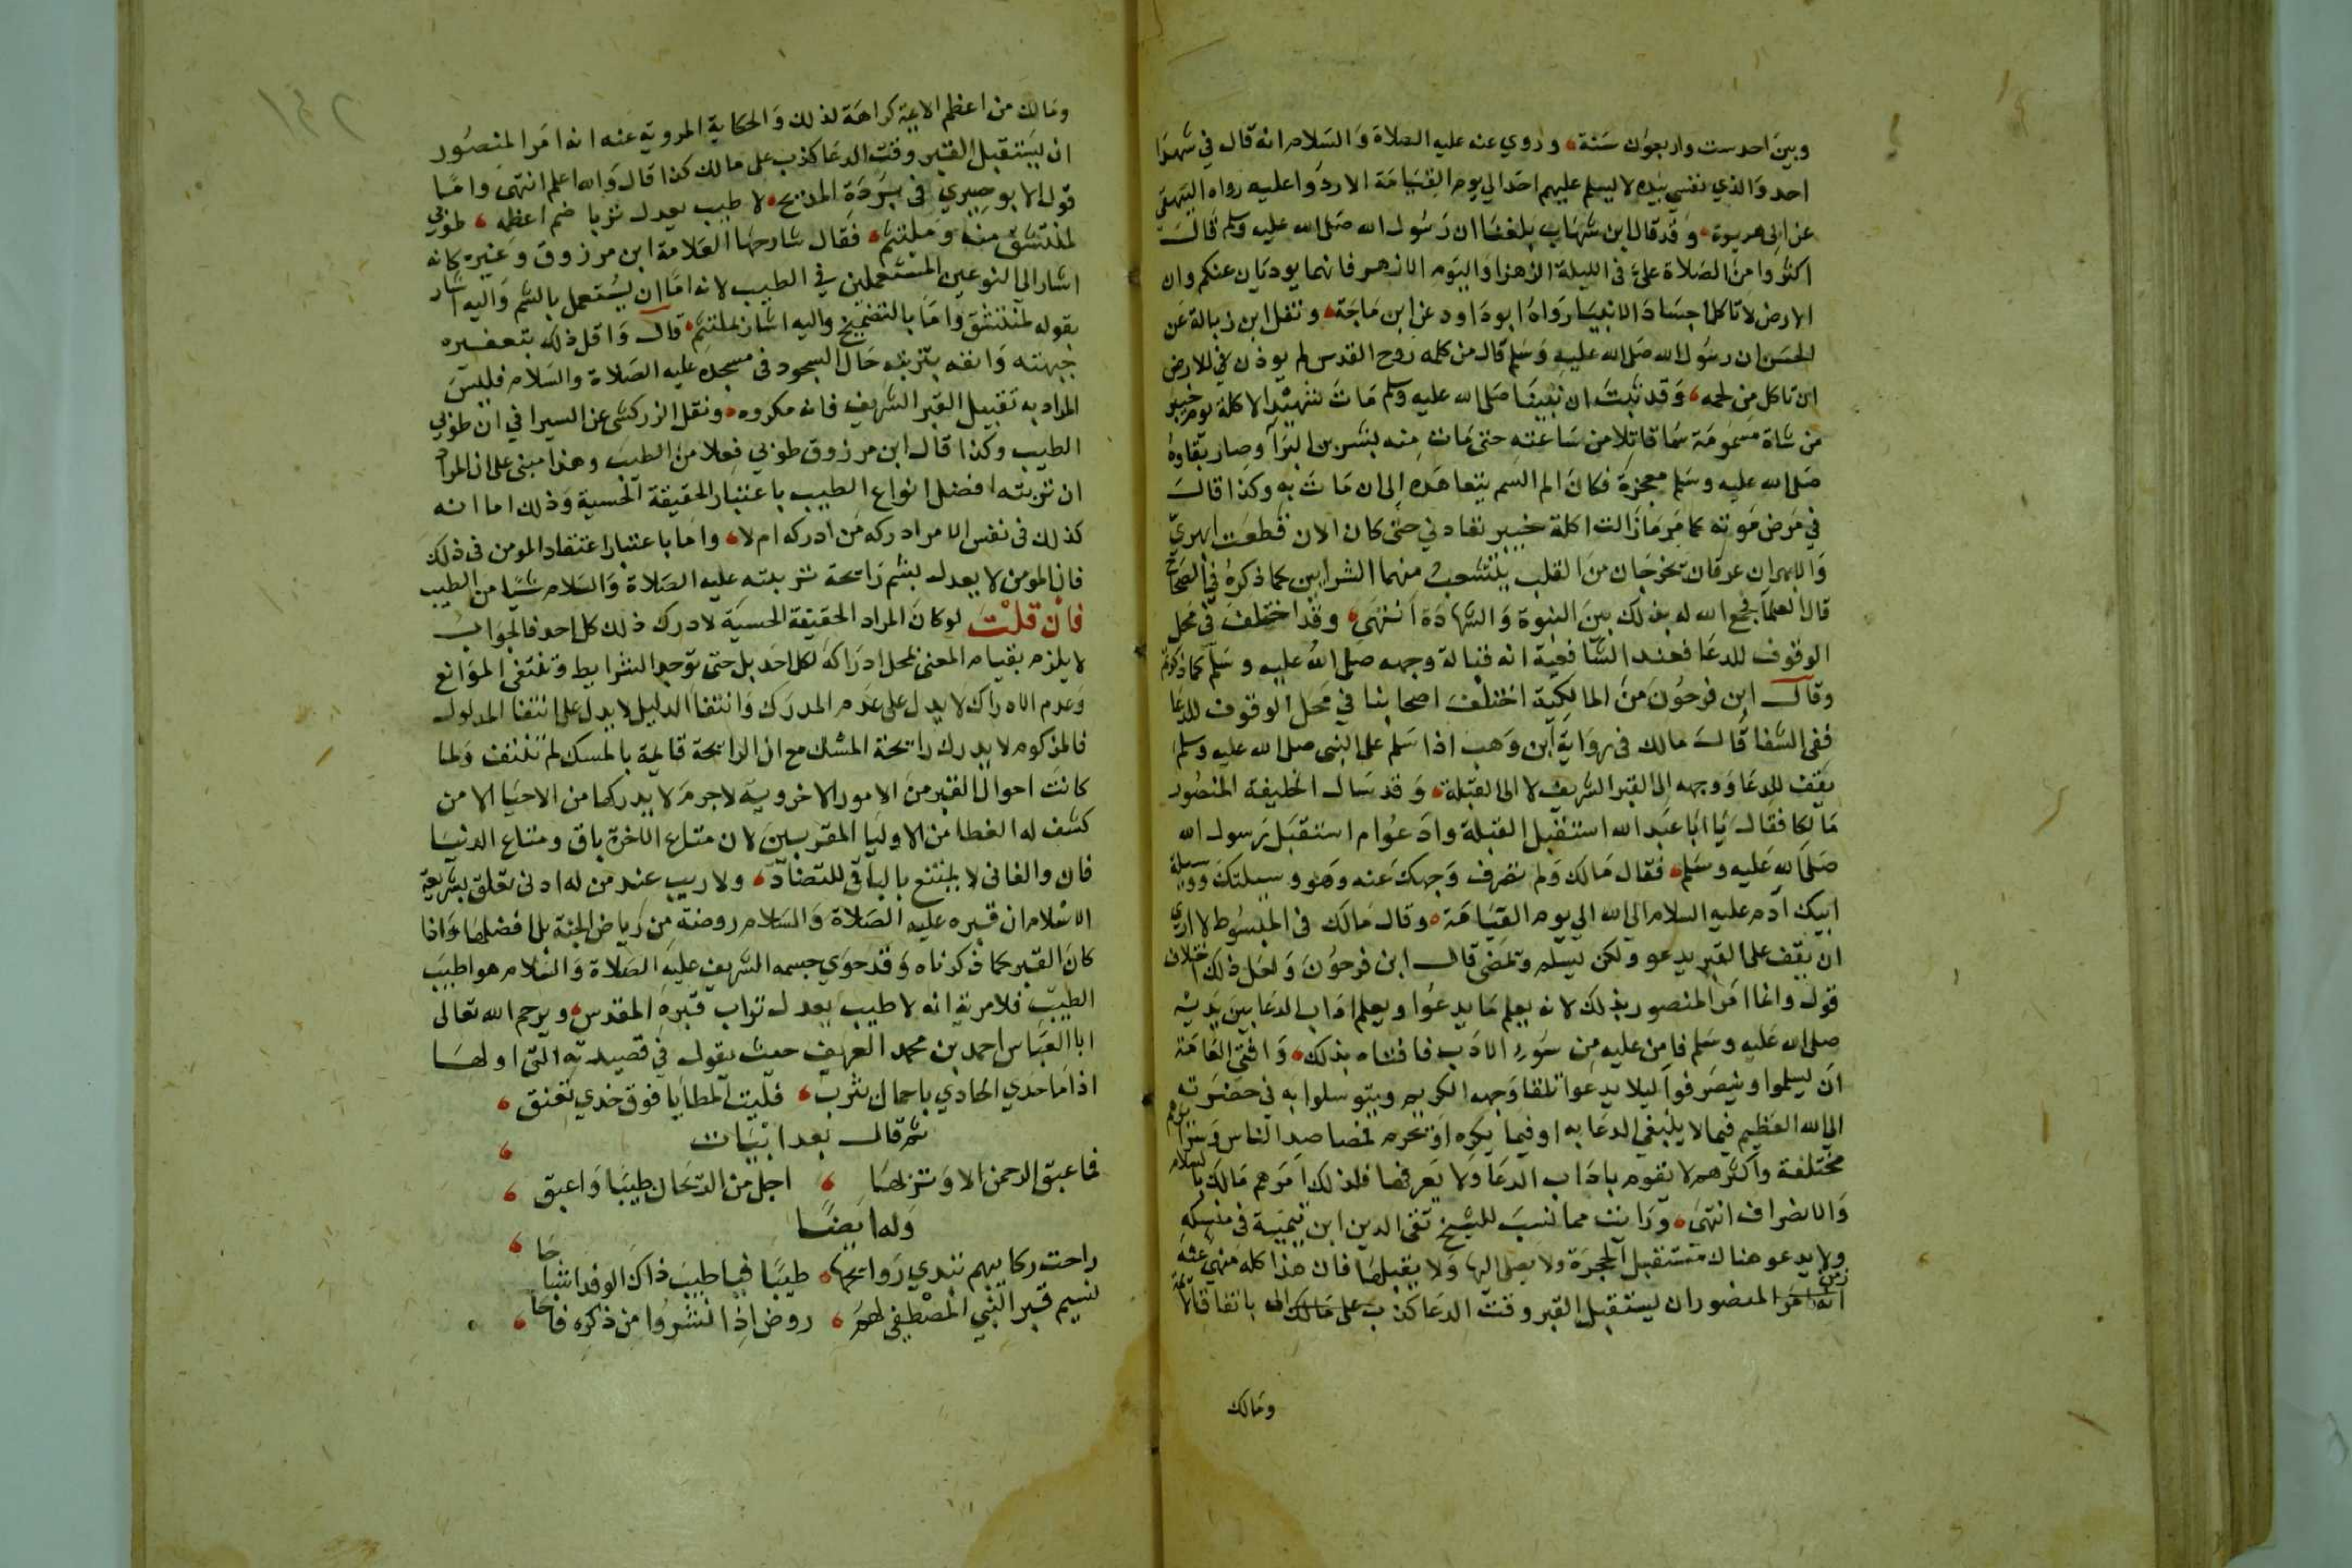 وبين احد ست واربعون سنة وروي عنه عليه الصلاة والسلام انه قال في شهدا
احد والذي نفسي بيده لا يسلم عليهم احد الي يوم القيامة الا ردوا عليه رواه البيهقي
عن ابي هريرة وقد قال ابن شهاب بلغنا ان رسول الله صلى الله عليه وسلم قال
اكثروا من الصلاة علي في الليلة الزهرا واليوم الازهر فانهما يوديان عنكم وان
الارض لا تاكل اجساد الانبيا رواه ابو داود عن ابن ماجة ونقل ابن زبالة عن
الحسن ان رسول الله صلى الله عليه وسلم قال من كلمه روح القدس لم يوذن في للارض
ان تاكل من لحمه وقد ثبت ان نبينا صلى الله عليه وسلم مات شهيدا لاكلة يوم خيبر
من شاة مسمومة سما قاتلا من ساعته حتى مات منه بشر بن البرا وصار بقاوه
صلى الله عليه وسلم معجزة فكان الم السم يتعاهده الى ان مات به وكذا قال
في مرض موته كما مر ما زالت اكلة خيبر تعادني حتى كان الان قطعت ابهري
والابهران عرقان تخرجان من القلب يتشعب منهما الشرايين كما ذكره في الصحاح
قال العلما فجمع الله له بذلك بين النبوة والشهادة انتهى وقد اختلف في محل
الوقوف للدعا فعند الشافعية انه قبالة وجهه صلى الله عليه وسلم كما ذكرته
وقال ابن فرحون من المالكية اختلف اصحابنا في محل الوقوف للدعا
ففي الشفا قال مالك في رواية ابن وهب اذا سلم على النبي صلى الله عليه وسلم
يقف للدعا ووجهه الى القبر الشريف لا الى القبلة وقد سال الخليفة المنصور
مالكا فقال يا ابا عبد الله استقبل القبلة وادعو ام استقبل رسول الله
صلى الله عليه وسلم فقال مالك ولم تصرف وجهك عنه وهو وسيلتك ووسيلة
ابيك ادم عليه السلام الي الله الي يوم القيامة وقال مالك في المبسوط لا اري
ان يقف على القبر يدعو ولكن يسلم وتمضي قال ابن فرحون ولعل ذلك اختلاف
قول وانما امر المنصور بذلك لانه يعلم ما يدعوا ويعلم اداب الدعا بين يديه
صلى الله عليه وسلم فامن عليه من سور الادب فافتاه بذلك وافتى العامة
ان يسلموا وينصرفوا ليلا يدعوا تلقا وجهه الكريم ويتوسلوا به في حضرته
الى الله العظيم فيما لا ينبغي الدعا به او فيما يكره او تحرم فمقاصد الناس وسرايرهم
مختلفة واكثرهم لا تقوم باداب الدعا ولا يعرفها فلذلك امرهم مالك بالسلام
والانصراف انتهى ورايت مما نسب للشيخ تقي الدين ابن تيمية في منسكه
ولا يدعو هناك مستقبل الحجرة ولا يصلي اليها ولا يقبلها فان هذا كله منهي عنه
المنصور ان يستقبل القبر وقت الدعا كذب على مالك باتفاق
ومالك
ومالك من اعظم الايمة كراهة لذلك والحكاية المروية عنه انه امر المنصور
ان يستقبل القبر وقت الدعا كذب على مالك كذا قال والله اعلم انتهى واما
قول الابوصيري في بردة المديح لا طيب يعدل تربا ضم اعظمه طوبي
لمنتشق منه وملتثم فقال شارحها العلامة ابن مرزوق وغيره كانه
اشار الى النوعين المستعملين في الطيب لانه اما ان يستعمل بالشم واليه اشار
بقوله لمنتشق واما بالتضميخ واليه اشار بملتثم قال واقل ذلك بتعفيره
جبهته وانفه بتربته حال السجود في مسجده عليه الصلاة والسلام فليس
المراد به تقبيل القبر الشريف فانه مكروه ونقل الزركشي عن السيرافي ان طوبي
الطيب وكذا قال ابن مرزوق طوبي فعلا من الطيب وهذا مبني على ان المراد
ان تربته افضل انواع الطيب باعتبار الحقيقة الحسية وذلك اما انه
كذلك في نفس الامر ادركه من ادركه ام لا واما باعتبار اعتقاد المومن في ذلك
فان المومن لا يعدل بشم رايحة تربته عليه الصلاة والسلام شيا من الطيب
فان قلت لو كان المراد الحقيقة الحسية لادرك ذلك كل احد فالجواب
لا يلزم بقيام المعنى لمحل ادراكه لكل احد بل حتى توجد الشرايط وتنتفي الموانع
وعدم الادراك لا يدل على عدم المدرك وانتفا الدليل لا يدل على انتفا المدلول
فالمزكوم لا يدرك رايحة المسك مع ان الرايحة قايمة بالمسك لم تنتف ولما
كانت احوال القبر من الامور الاخروية لا جرم لا يدركها من الاحيا الا من
كشف له الغطا من الاوليا المقربين لان متاع الاخرة باق ومتاع الدنيا
فان والفاني لا يمتنع بالباقي للتضاد ولا ريب عند من له ادنى تعلق بشريعة
الاسلام ان قبره عليه الصلاة والسلام روضة من رياض الجنة بل افضلها واذا
كان القبر كما ذكرناه وقد حوي جسمه الشريف عليه الصلاة والسلام هو اطيب
الطيب فلا مرية انه لا طيب يعدل تراب قبره المقدس ويرحم الله تعالى
ابا العباس احمد بن محمد العريف حيث يقول في قصيدته التي اولها
اذا ما حدي الحادي باجمال يثرب فليت المطايا فوق خدي تعنق
ثم قال بعد ابيات
فما عبق الرحمن الا وتربها اجل من الريحان طيبا واعبق
وله ايضا
راحت ركايبهم تبدي روايحها طيبا فيا طيب ذاك الوفد اشباحا
نسيم قبر النبي المصطفى لهم روض اذا انشروا من ذكره فاحا